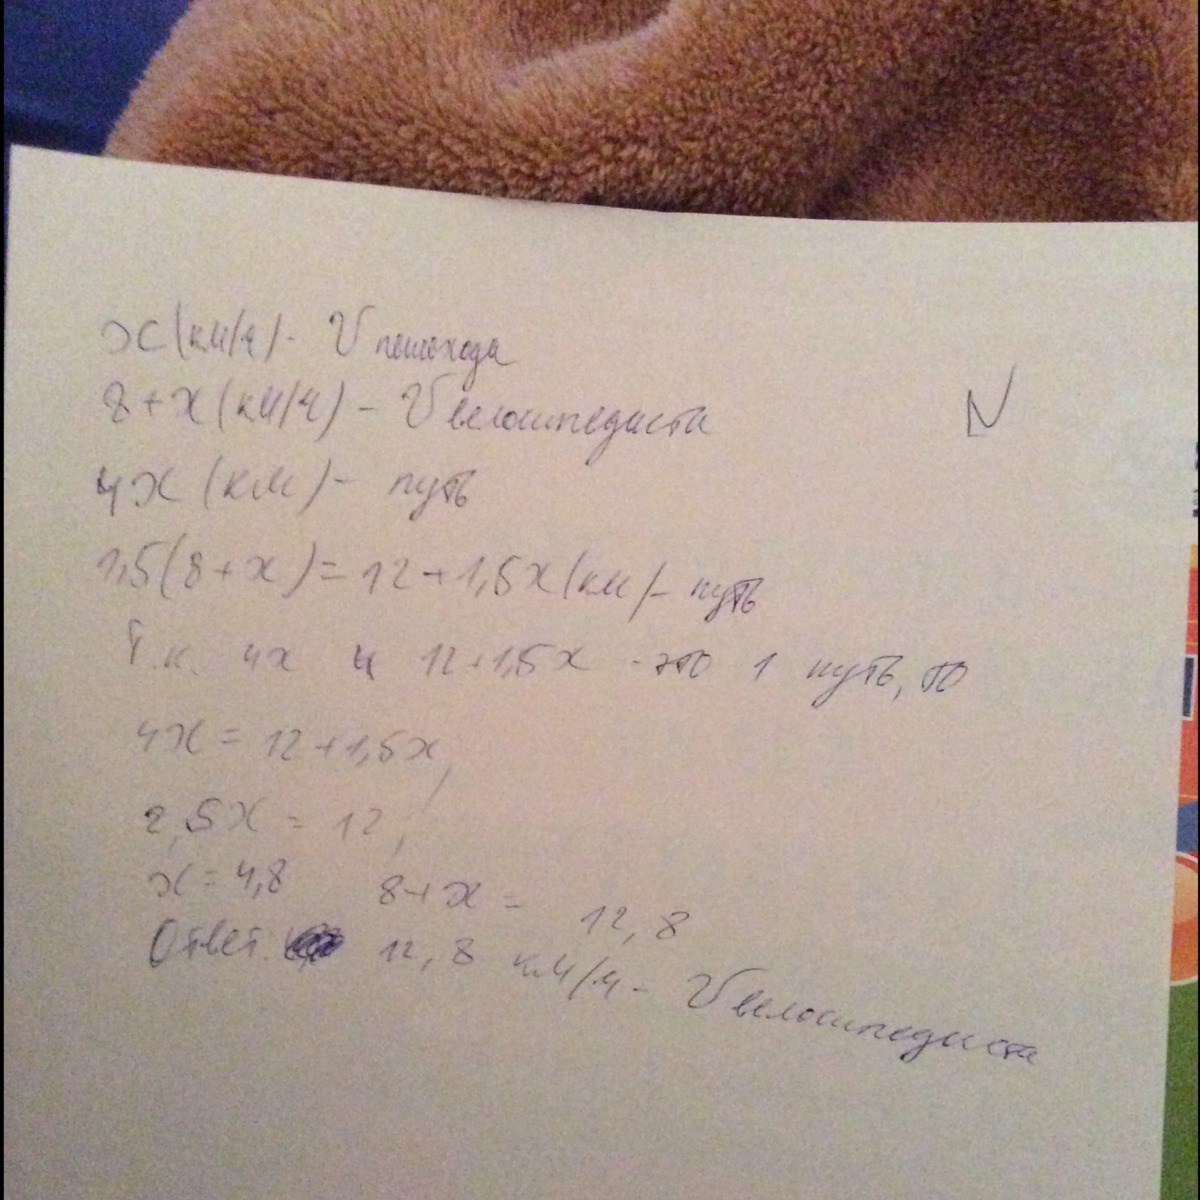 x (км/ч) - V пешехода
8+x (км/ч) - V велосипедиста
4x (км) - путь
1,5(8+x)=12+1,5x (км) - путь
Т.к. 4x и 12+1,5x - это 1 путь, то
4x=12+1,5x,
2,5x=12,
x=4,8 8+x= 12,8
Ответ: 12,8 км/ч - V велосипедиста